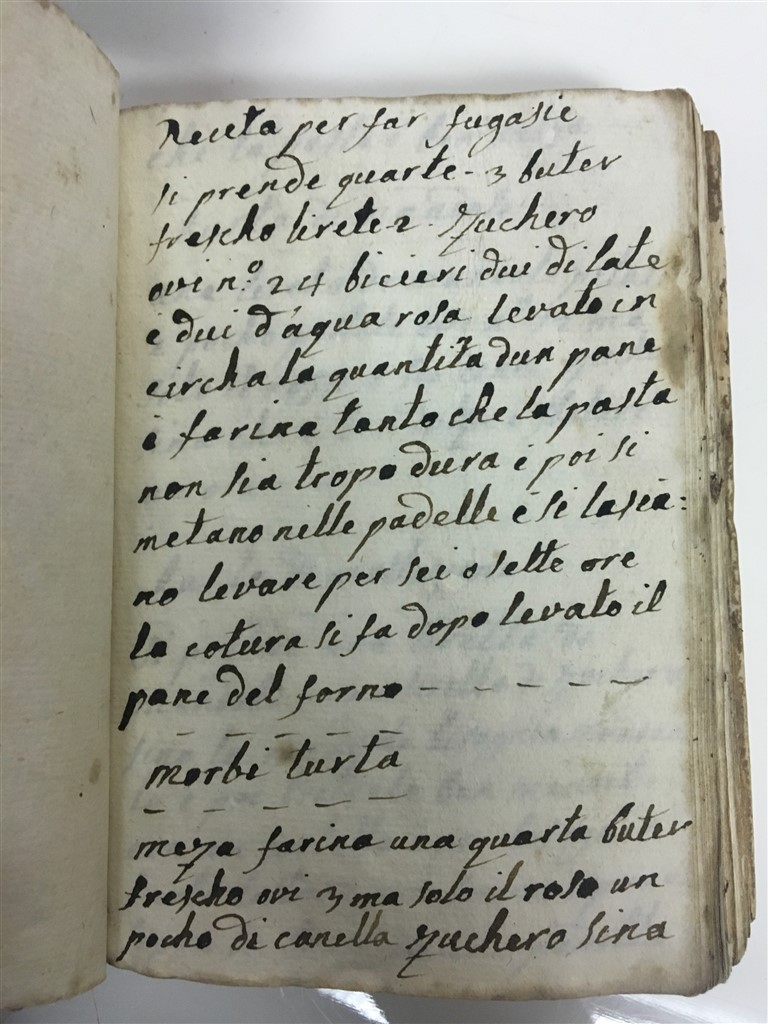 Receta per far fugasie
si prende quarte - 3 buter
frescho lirete 2. Zuchero
ovi n.o 24 bicieri dui di late
e dui d'agua rosa levato in
circha la quantità dun pane
è farina tanto che la pasta
non sia tropo dura è poi si
metano nelle padelle è si lascia:
no levare per sei o sette ore
la cotura si fa dopo levato il
pane del forno - - - - -
morbi turta
meza farina una quarta buter
frescho ovi 3 ma solo il roso un
pocho di canella Zuchero sina